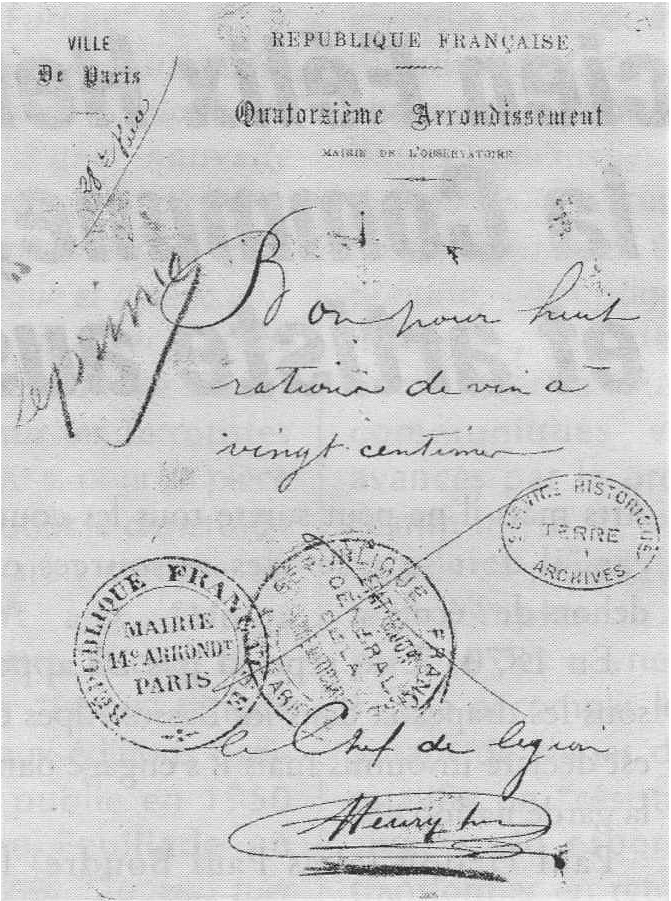 VILLE
De Paris
RÉPUBLIQUE FRANÇAISE
Quatorzième Arrondissement
MAIRIE DE L'OBSERVATOIRE
Bon pour huit
rations de vin à
vingt centimes
SERVICE HISTORIQUE
TERRE
ARCHIVES
RÉPUBLIQUE FRANÇAISE
MAIRIE
14e ARRONDT
PARIS
RÉPUBLIQUE FRANÇ
DE LA
le Chef de légion
Henry